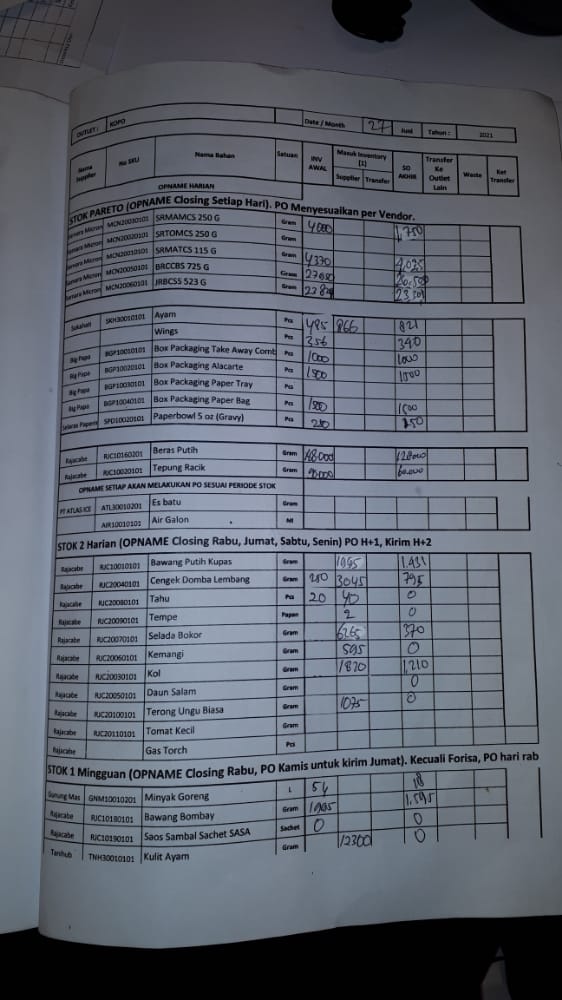 OUTLET : KOPO Date / Month 27 Juni Tahun : 2021
Nama Supplier No SKU Nama Bahan Satuan INV AWAL Masuk Inventory (1) Supplier Transfer SO AKHIR Transfer Ke Outlet Lain Waste Ket Transfer
OPNAME HARIAN
STOK PARETO (OPNAME Closing Setiap Hari). PO Menyesuaikan per Vendor.
MCN20030101 SRMAMCS 250 G Gram 4000 1,750
MCN20020101 SRTOMCS 250 G Gram
SRMATCS 115 G Gram 4370 4,035
MCN20050101 BRCCBS 725 G Gram
MCN20060101 JRBCSS 523 G Gram
Sukahati SKH30010101 Ayam Pcs 495 866 821
Wings Pcs 356 340
Big Papa BGP10010101 Box Packaging Take Away Comb Pcs 1000 1000
Big Papa BGP10020101 Box Packaging Alacarte Pcs
Big Papa BGP10030101 Box Packaging Paper Tray
Big Papa BGP10040101 Box Packaging Paper Bag Pcs 1500 1500
SPD10020101 Paperbowl 5 oz (Gravy) Pcs
Rajacabe RJC10160201 Beras Putih Gram
Rajacabe RJC10020101 Tepung Racik Gram
OPNAME SETIAP AKAN MELAKUKAN PO SESUAI PERIODE STOK
PT ATLAS ICE ATL30010201 Es batu Gram
AIR10010101 Air Galon Ml
STOK 2 Harian (OPNAME Closing Rabu, Jumat, Sabtu, Senin) PO H+1, Kirim H+2
Rajacabe RJC10010101 Bawang Putih Kupas Gram 1,431
Rajacabe RJC20040101 Cengek Domba Lembang Gram 210 3045 795
Rajacabe RJC20080101 Tahu Pcs 20 40 0
Rajacabe RJC20090101 Tempe Papan 2 0
Rajacabe RJC20070101 Selada Bokor Gram 6265 370
Rajacabe RJC20060101 Kemangi Gram 595 0
Rajacabe RJC20030101 Kol Gram 1820 1,210
Rajacabe RJC20050101 Daun Salam Gram 0
Rajacabe RJC20100101 Terong Ungu Biasa Gram 1075 0
Rajacabe RJC20110101 Tomat Kecil Gram
Rajacabe Gas Torch Pcs
STOK 1 Mingguan (OPNAME Closing Rabu, PO Kamis untuk kirim Jumat). Kecuali Forisa, PO hari rab
Gunung Mas GNM10010201 Minyak Goreng L 54 18
Rajacabe RJC10180101 Bawang Bombay Gram 1995 1,595
Rajacabe RJC10190101 Saos Sambal Sachet SASA Sachet 0 0
Tanhub TNH30010101 Kulit Ayam Gram 12300 0